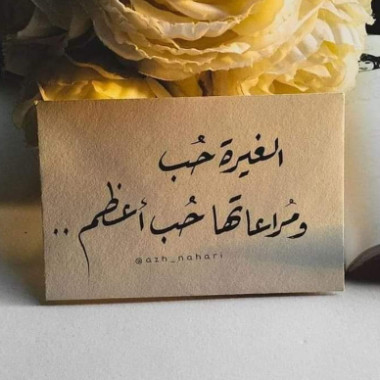 الغيرة حُب
ومُراعاتها حُب أعظم ..
@azh_nahari